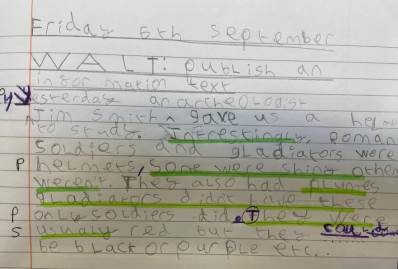 Friday 6th September
WALT: publish an
information text
Yesterday an archeologist
Jim Smith ^ gave us a
to study. Intrestingly, roman
Soldiers and gladiators were
P helmets, some were shiny other
weren't. They also had plumes
gladiators didnt have these
P only soldiers did. They were
S usualy red but they
to black or purple etc..